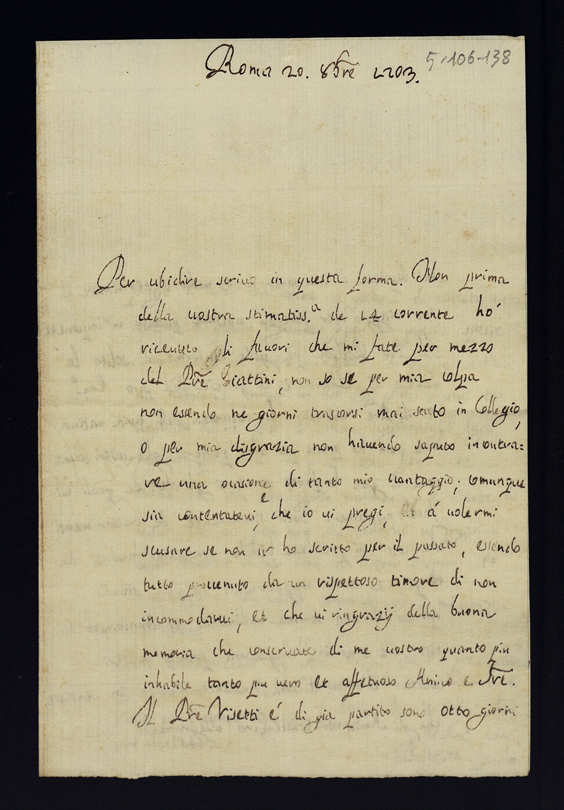 Roma 20. 8bre 1703.
5,106-138
Per ubidire scrivo in questa forma. Non prima
della vostra stimatiss.a de 14 corrente hó
ricevuto gli favori che mi fate per mezzo
del Pre Giattini, non so se per mia colpa
non essendo ne giorni trascorsi mai stato in Collegio,
o per mia disgrazia non havendo saputo incontra=
re una ocasione di tanto mio vantaggio; comunque
sia contentatevi, che io vi pregi, á volermi
scusare se non vi ho scritto per il passato, essendo
tutto provenuto da un rispettoso timore di non
incommodarvi, et che vi ringrazij della buona
memoria che conservate di me vostro quanto piu
inhabile tanto piu vero et affetuoso Amico e Sre.
Il Pre Visetti é di gia partito sono otto giorni